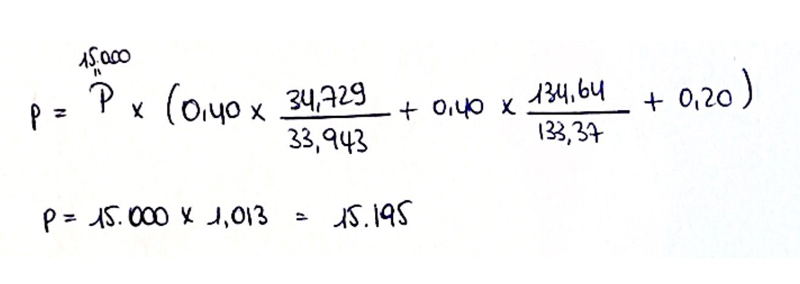 15.000
"
p = P x (0,40 x 34,729 / 33,943 + 0,40 x 134,64 / 133,37 + 0,20)
p = 15.000 x 1,013 = 15.195